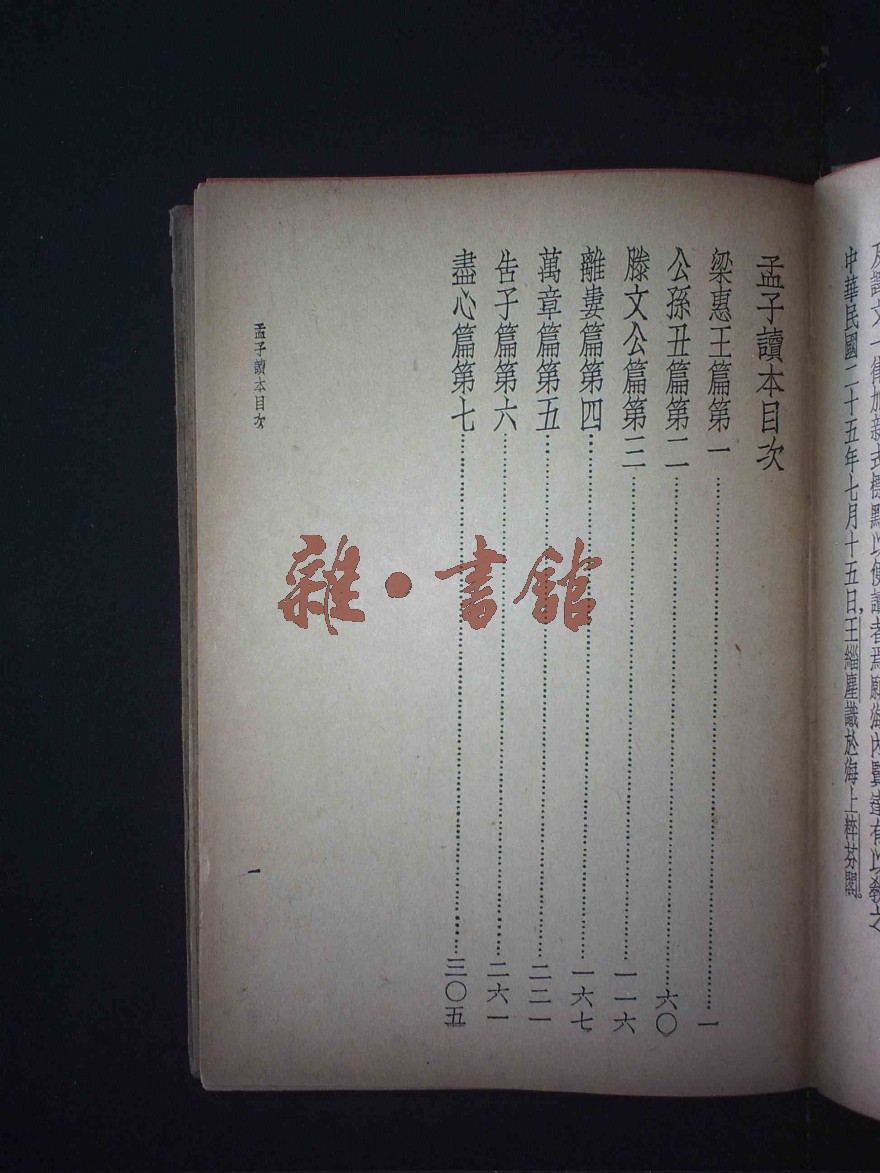 及譯文一律加新式標點以便讀者焉願海內賢達有以教之
中華民國二十五年七月十五日，王緇塵識於海上粹芬閣。
孟子讀本目次
梁惠王篇第一……一
公孫丑篇第二……六〇
滕文公篇第三……一一六
離婁篇第四……一六七
萬章篇第五……二二一
告子篇第六……二六一
盡心篇第七……三〇五
孟子讀本目次
一
雜·書館